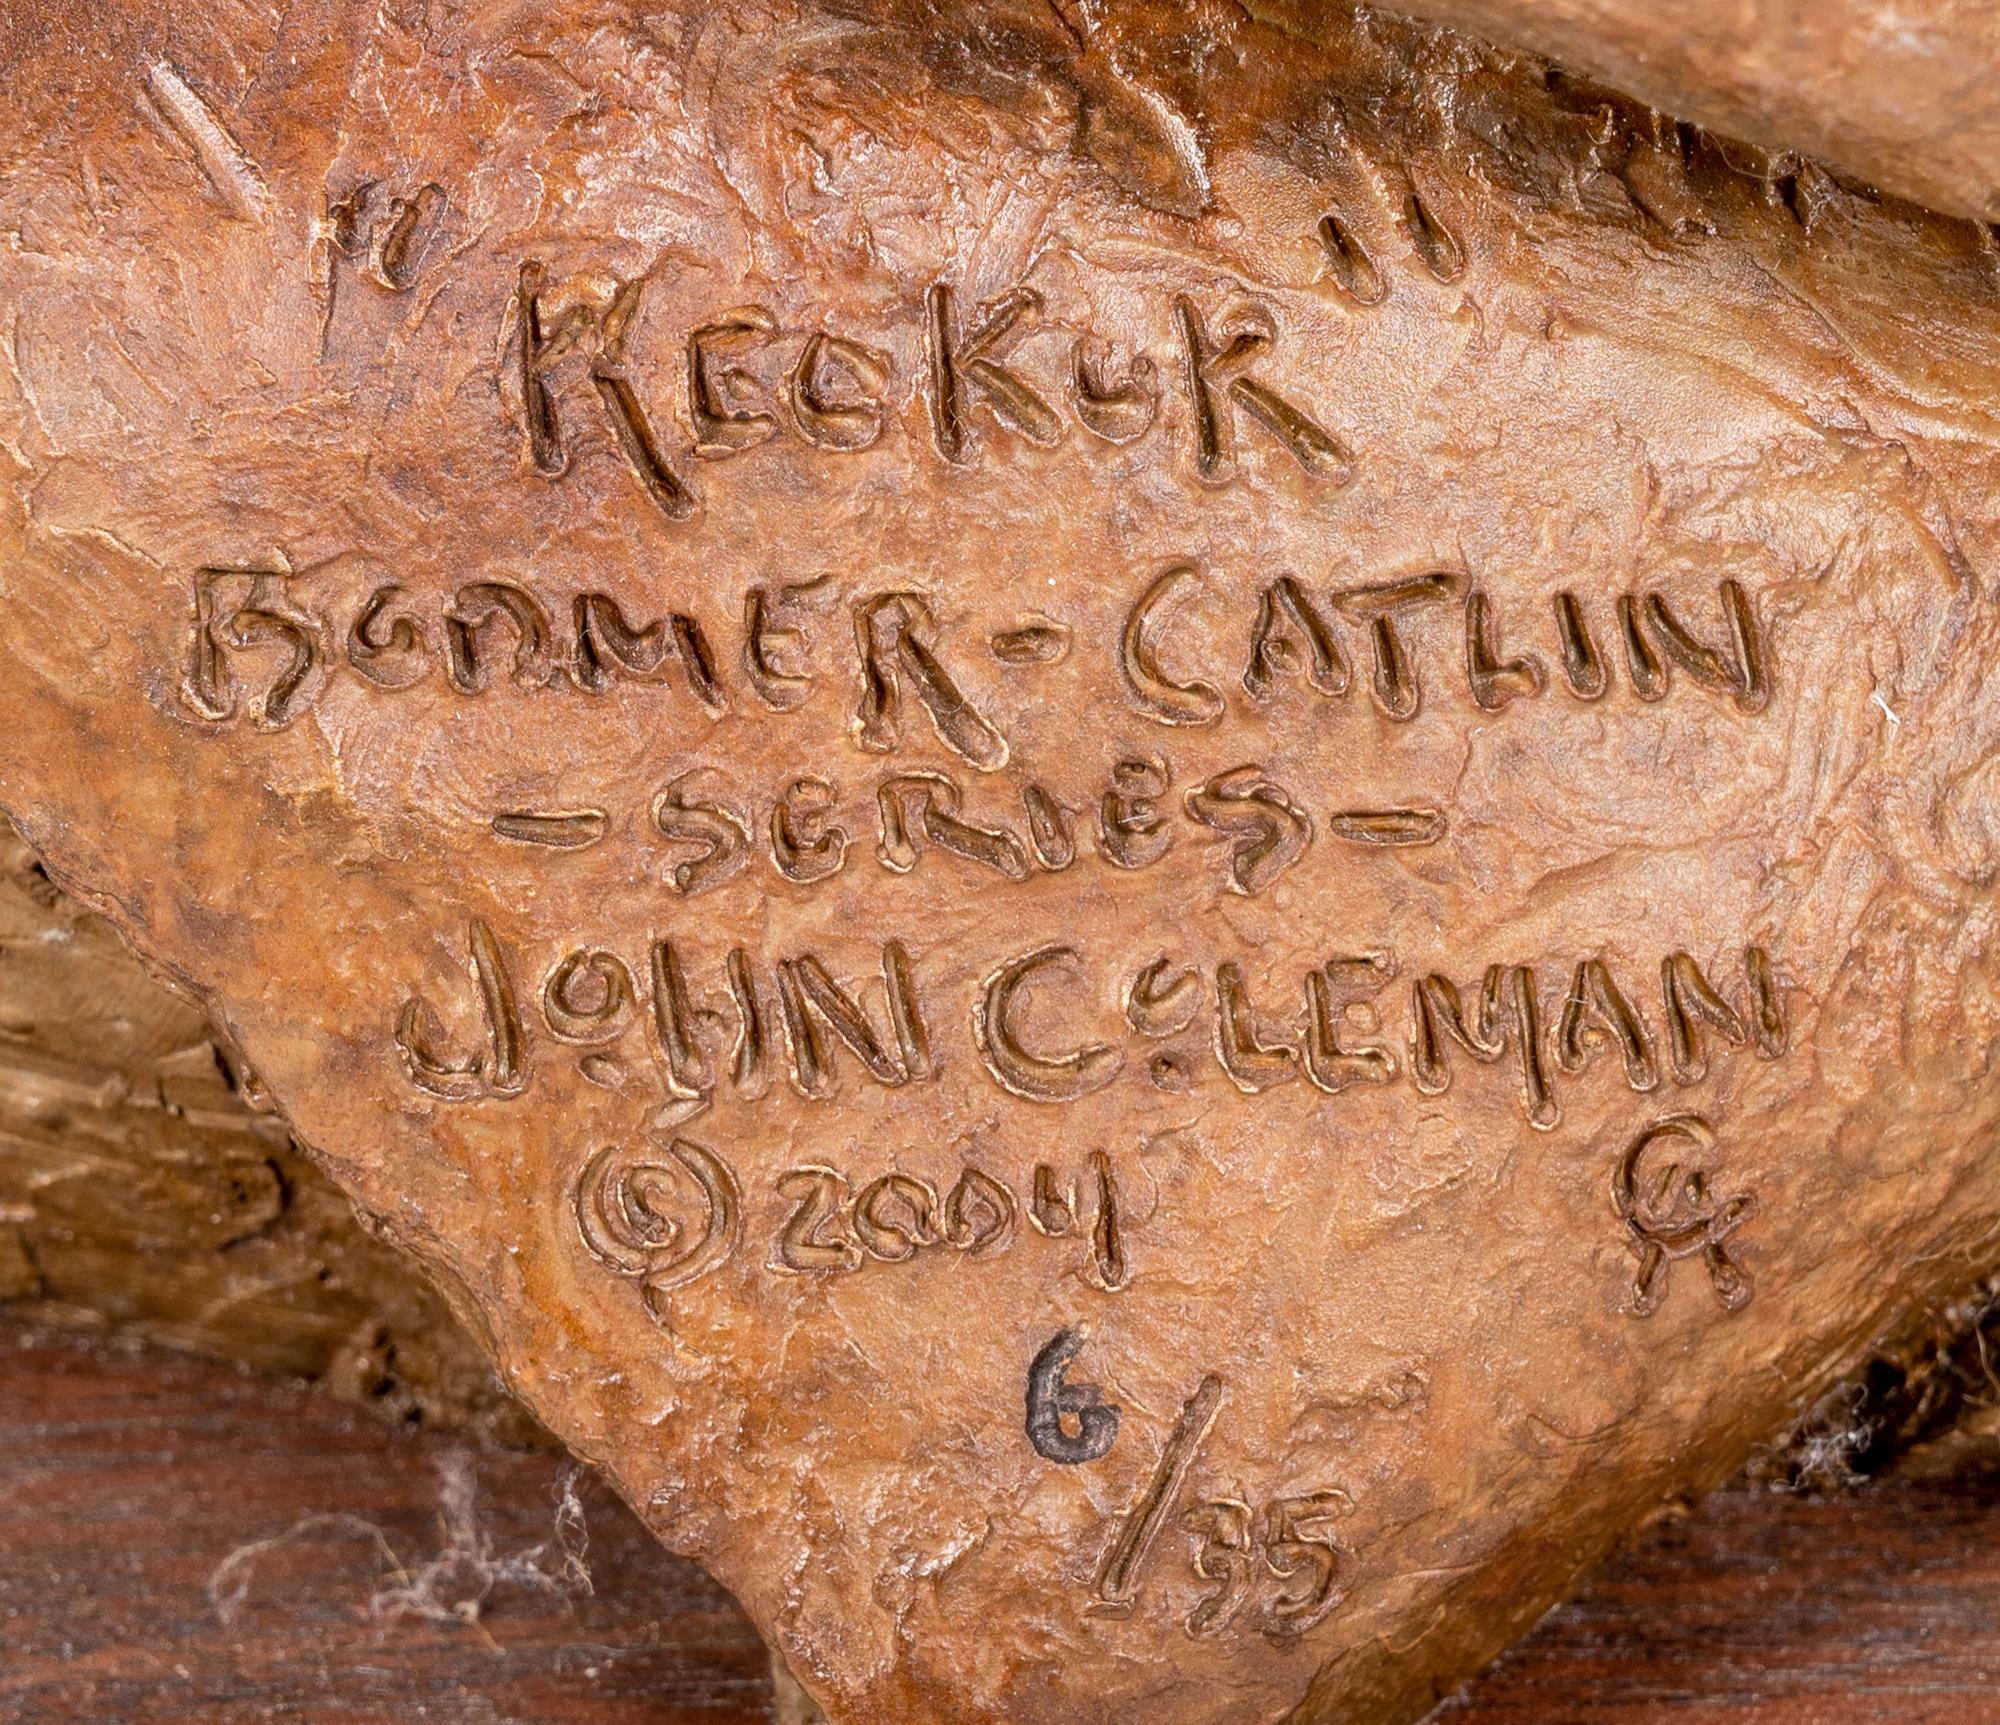 "KEOKUK"
BODMER - CATLIN
- SERIES -
JOHN COLEMAN
© 2004 CA
6/35